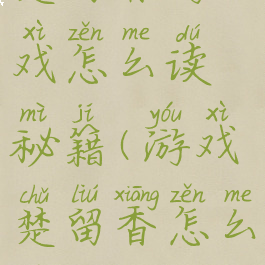 xì zěn me dú
戏怎么读
mì jí yóu xì
秘籍(游戏
chǔ liú xiāng zěn me
楚留香怎么